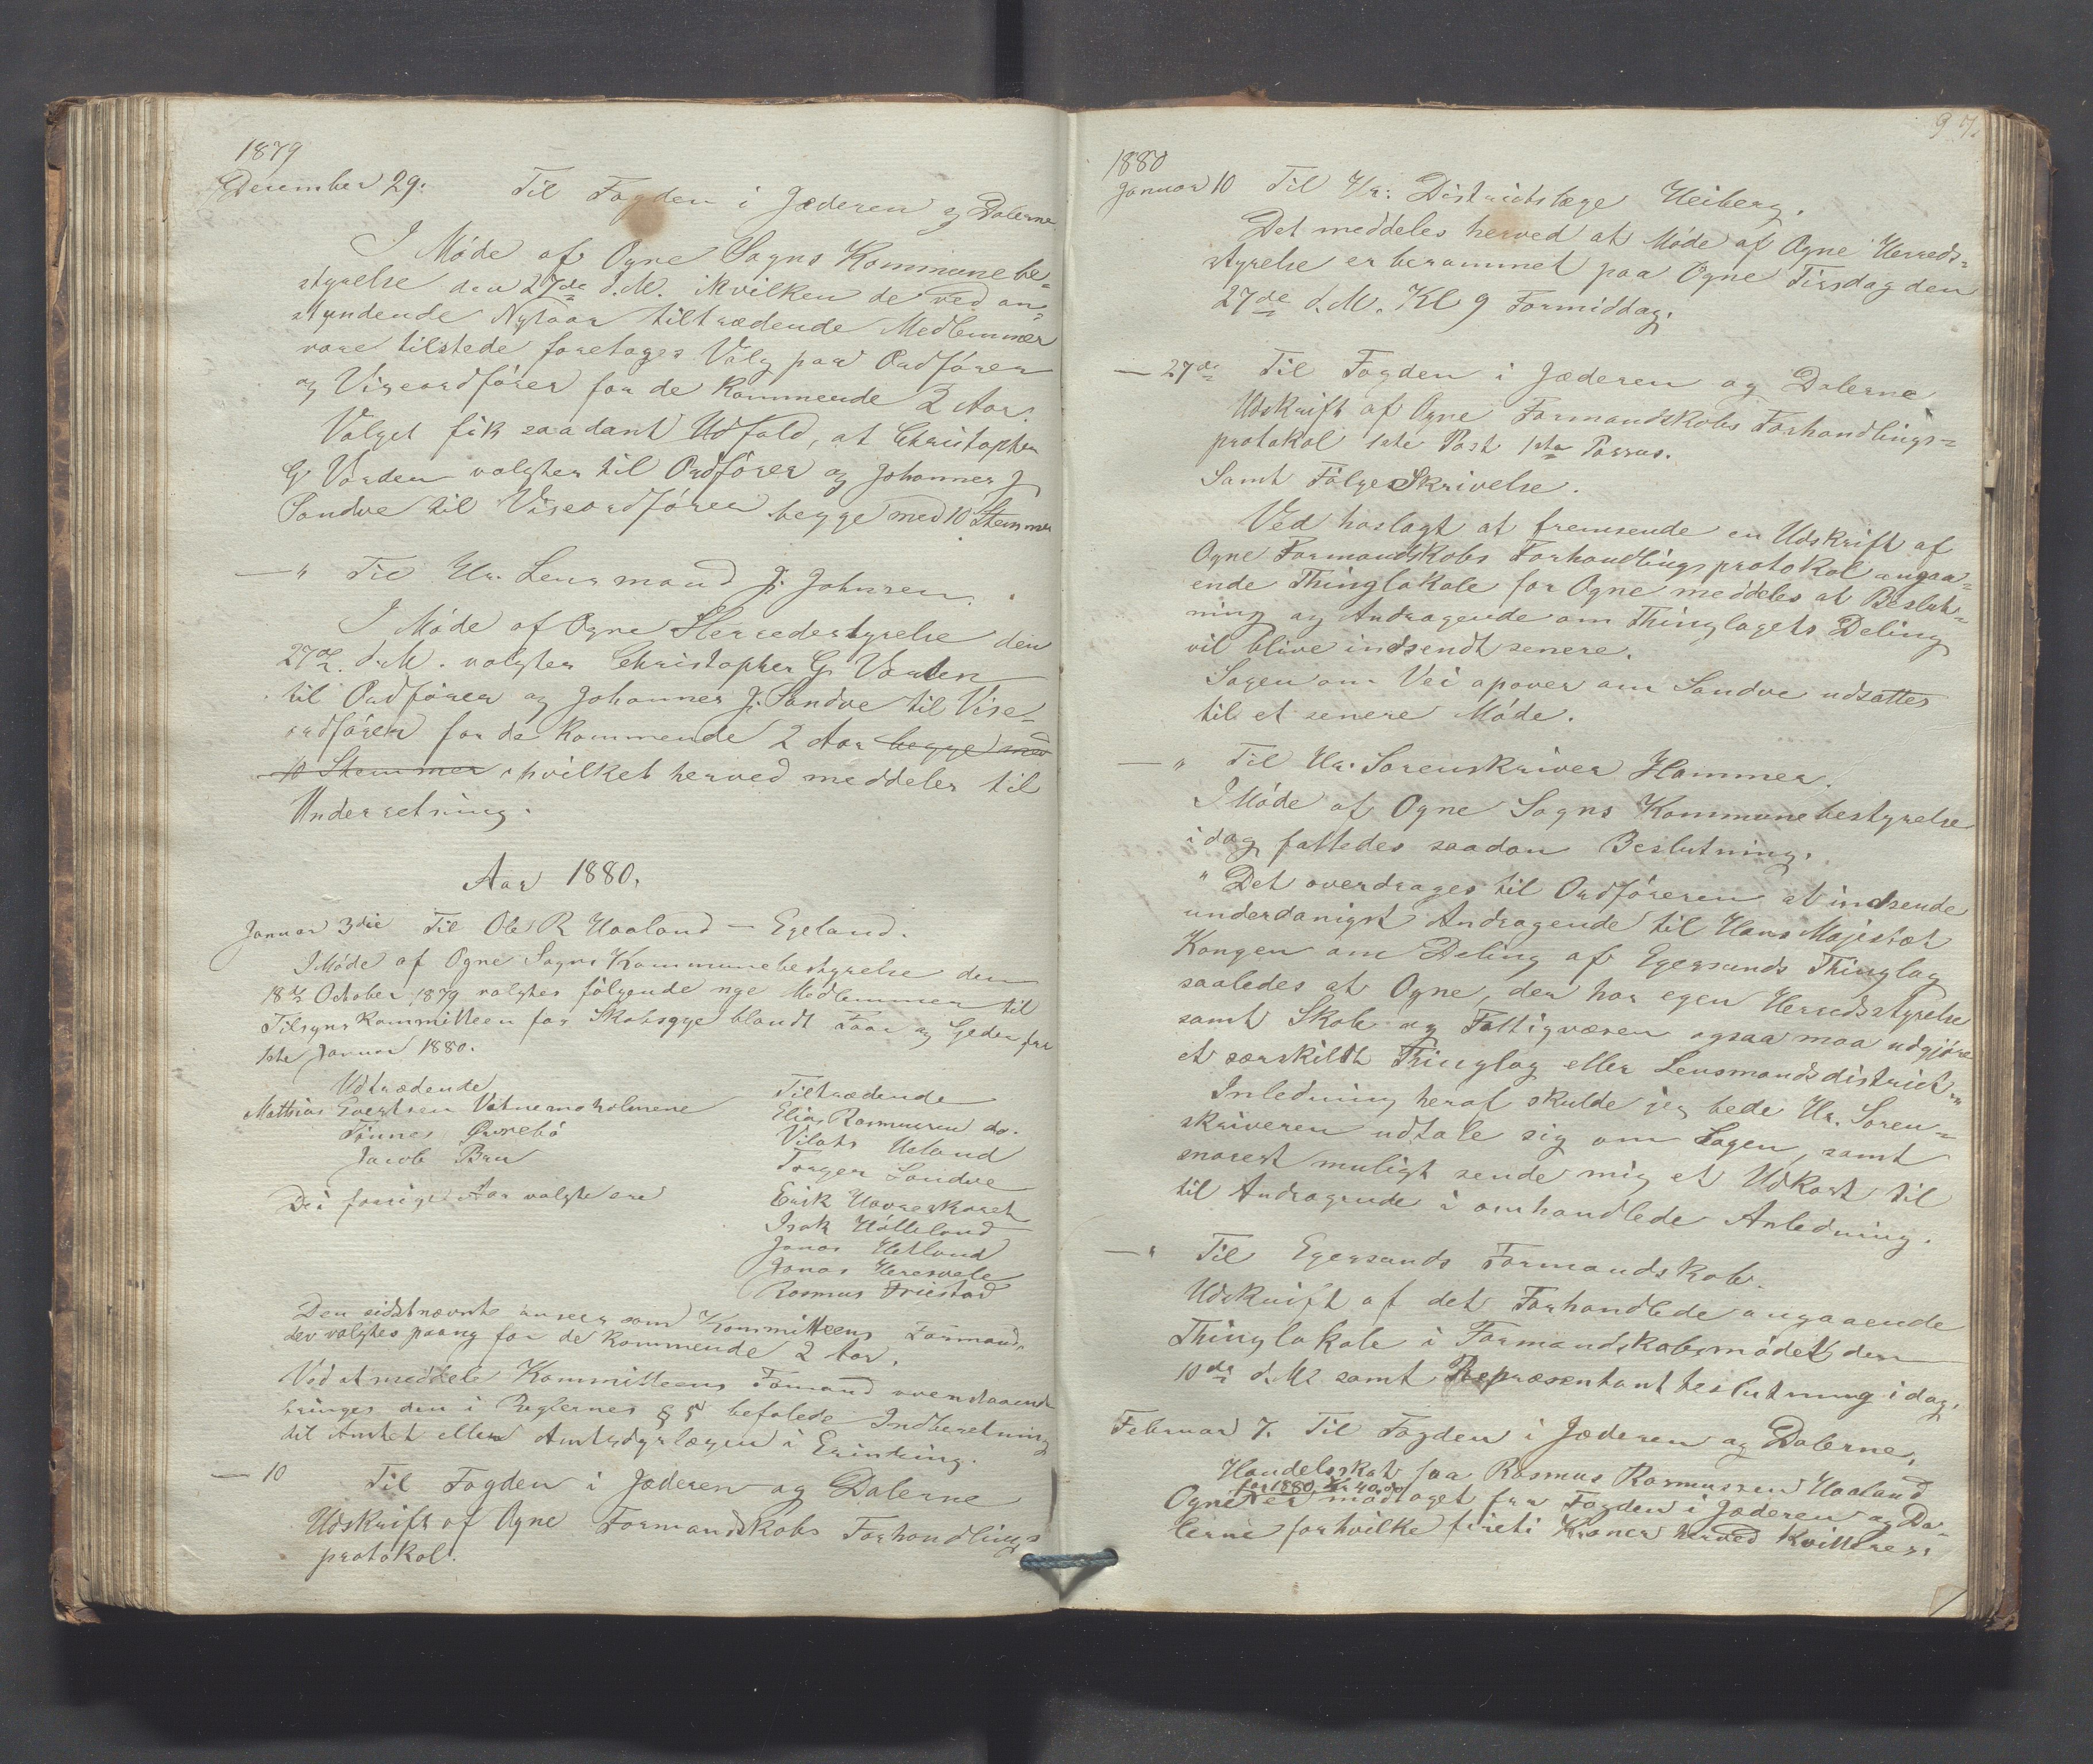 1879
December 29. Til Fogden i Jæderen og Dalerne
I Møde af Ogne Sogns Kommunebe=
styrelse den 27de d.M. ihvilken de ved an=
stundende Nytaar tiltrædende Medlemmer
vare tilstede foretoges Valg paa Ordfører
og Viseordfører for de kommende 2 Aar.
Valget fik saadant Udfald, at Christopher
G Varden valgtes til Ordfører og Johannes J
Sandve til Viseordfører begge med 10 Stemmer
— " Til Hr. Lensmand J. Johnsen.
I Møde af Ogne Herredsstyrelse den
27de d.M. valgtes Christopher G. Varden
til Ordfører og Johannes J. Sandve til Vise-
ordfører for de kommende 2 Aar begge med
10 Stemmer, hvilket herved meddeles til
Underretning.
Aar 1880.
Januar 3die Til Ole R Haaland — Egeland.
I Møde af Ogne Sogns Kommunebestyrelse den
18de October 1879 valgtes følgende nye Medlemmer til
Tilsyns Kommitteen for Skabsyge blandt Faar og Geder fra
1ste Januar 1880.
Udtrædende
Mathias Evertsen Vatnemoholmene
Tønnes
Jacob Bru
De i forrige Aar valgte ere
Tiltrædende
Elias Rasmussen do.
Ueland
Torger Sandve
Erik
Isak Hølleland
Jonas Hetland
Jonas Heresvele
Rasmus Friestad
Den sidstnævnte ansees som Kommitteens Formand,
der valgtes paany for de kommende 2 Aar.
Ved at meddele Kommitteens Formand ovenstaaende
bringes den i Reglernes § 5 befalede Indberetning
til Amtet eller Amtsdyrlægen i Erindring.
— 10 Til Fogden i Jæderen og Dalerne
Udskrift af Ogne Formandskabs Forhandlings
protokol.
97.
1880
Januar 10 Til Hr. Distriktslæge Heiberg.
Det meddeles herved at Møde af Ogne Herreds=
styrelse er berammet paa Ogne Tirsdag den
27de d.M. Kl 9 Formiddag.
— 27de Til Fogden i Jæderen og Dalerne
Udskrift af Ogne Formandskabs Forhandlings=
protokol 1ste Post 1ste Passus.
Samt FølgeSkrivelse.
Ved hoslagt at fremsende en Udskrift af
Ogne Formandskabs Forhandlingsprotokol angaa=
ende Thinglokale for Ogne meddeles at Beslut=
ning og Andragende om Thinglagets Deling
vil blive indsendt senere.
Sagen om Vei apover om Sandve udsattes
til et senere Møde.
— " Til Hr. Sorenskriver Hammer.
I Møde af Ogne Sogns Kommunebestyrelse
idag fattedes saadan Beslutning.
" Det overdrages til Ordføreren at indsende
underdanigst Andragende til Hans Majestæt
Kongen om Deling af Egersunds Thinglag
saaledes at Ogne, der har egen Herredsstyrelse
samt Skole og Fattigvæsen ogsaa maa udgjøre
et særskildt Thinglag eller Lensmandsdistrict."
Inledning heraf skulde jeg bede Hr. Soren=
skriveren udtale sig om Sagen, samt
snarest muligt sende mig et Udkast til
til Andragende i omhandlede Anledning.
— " Til Egersunds Formandskab.
Udskrift af det Forhandlede angaaende
Thinglokale i Formandskabsmødet den
10de d.M. samt Repræsentantbeslutning idag.
Februar 7. Til Fogden i Jæderen og Dalerne.
Handelsskat fra Rasmus Rasmussen Haaland
for 1880, Kr 40,00
Ogne er modtaget fra Fogden i Jæderen og Da-
lerne for hvilke firti Kroner herved Kvitteres.